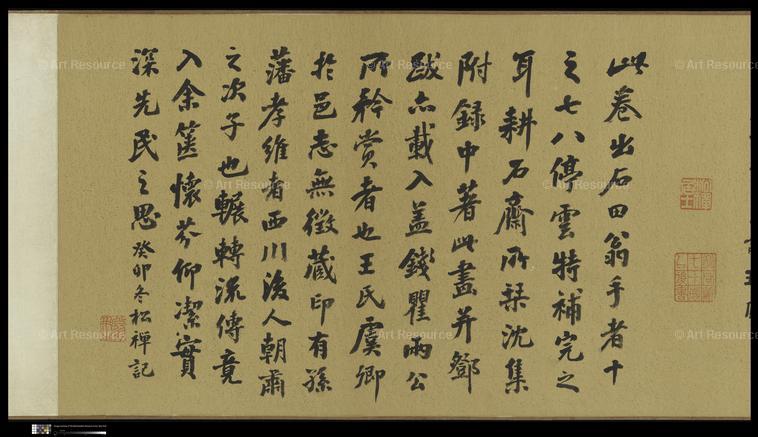 此卷出石田翁手者十
之七八停雲特補完之
耳耕石齋所栞沈集
附録中著此畫并鄧
跋亦載入蓋錢瞿兩公
所矜賞者也王氏虞卿
於邑志無徴藏印有孫
藩孝維者西川後人朝肅
之次子也輾轉流傳竟
入余篋懷芬仰潔實
深先民之思癸卯冬松禪記
© Art Resource
© Art Resource
© Art Resource
© Art Resource
© Art Resource
© Art Resource
© Art Resource
© Art Resource
© Art Resource